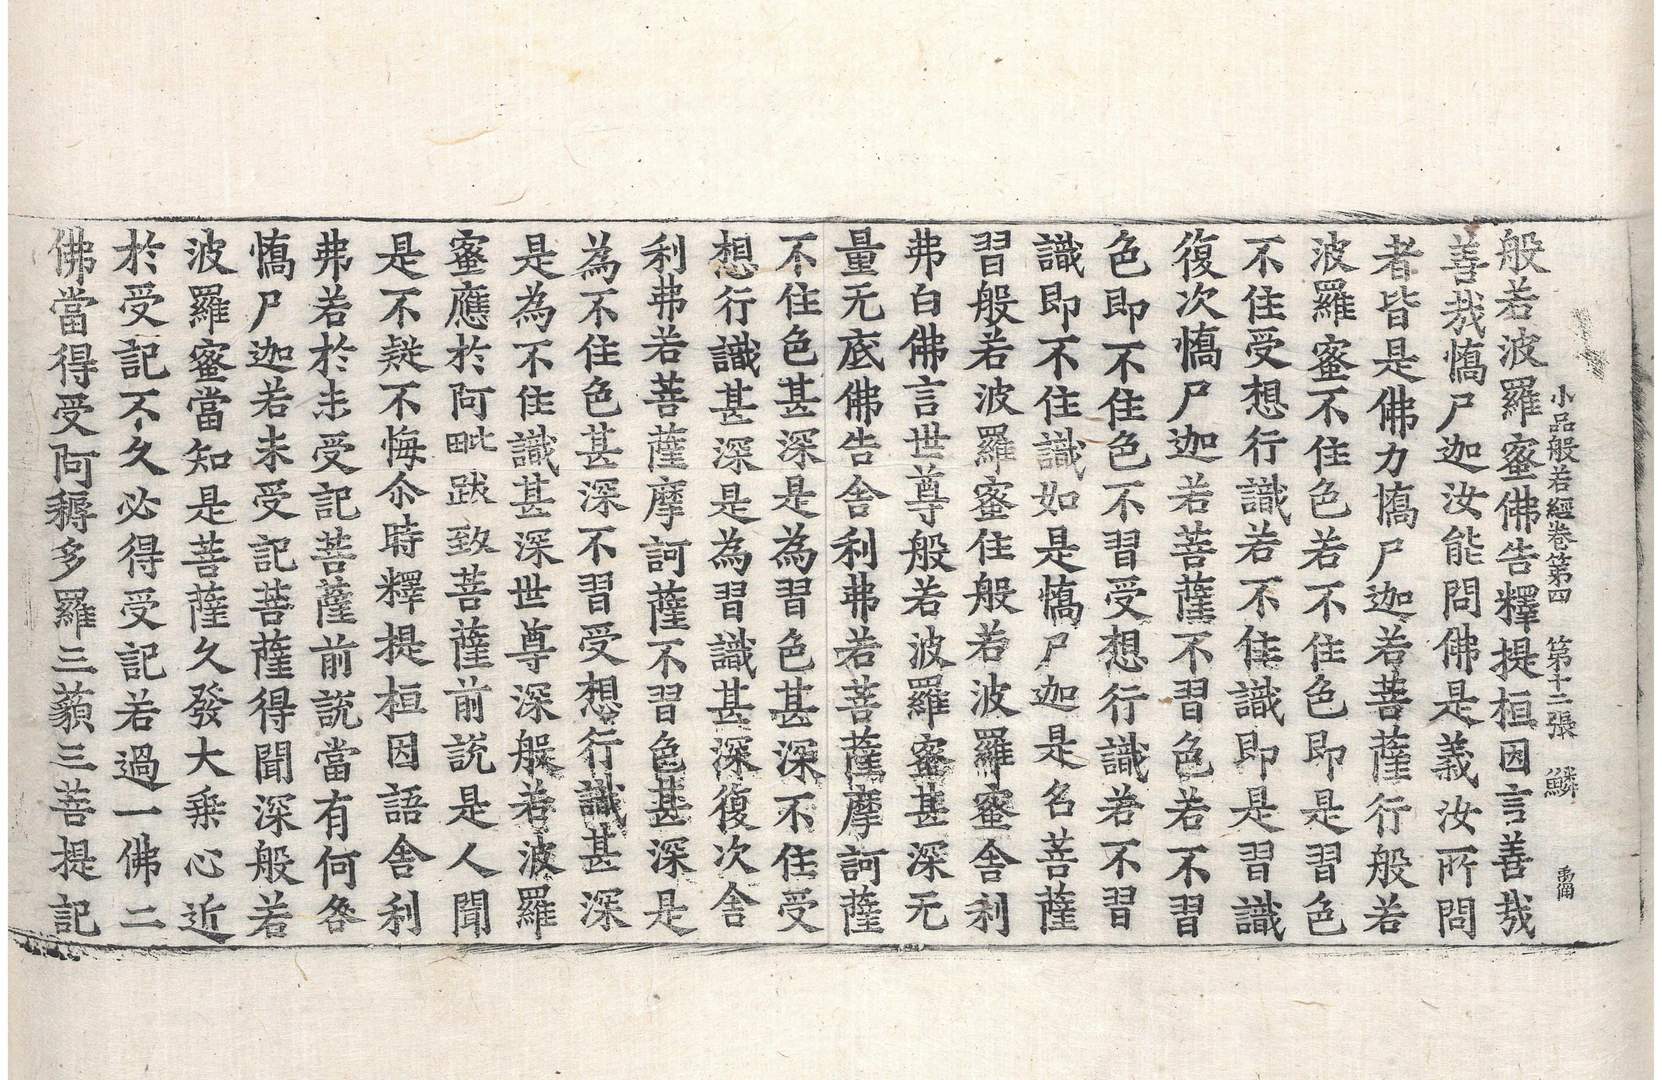 小品般若經卷第四　第十二張　鱗
般若波羅蜜佛告釋提桓因言善哉
善哉憍尸迦汝能問佛是義汝所問
者皆是佛力憍尸迦若菩薩行般若
波羅蜜不住色若不住色即是習色
不住受想行識若不住識即是習識
復次憍尸迦若菩薩不習色若不習
色即不住色不習受想行識若不習
識即不住識如是憍尸迦是名菩薩
習般若波羅蜜住般若波羅蜜舍利
弗白佛言世尊般若波羅蜜甚深无
量无底佛告舍利弗若菩薩摩訶薩
不住色甚深是為習色甚深不住受
想行識甚深是為習識甚深復次舍
利弗若菩薩摩訶薩不習色甚深是
為不住色甚深不習受想行識甚深
是為不住識甚深世尊深般若波羅
蜜應於阿毗跋致菩薩前說是人聞
是不疑不悔尒時釋提桓因語舍利
弗若於未受記菩薩前說當有何咎
憍尸迦若未受記菩薩得聞深般若
波羅蜜當知是菩薩久發大乗心近
於受記不久必得受記若過一佛二
佛當得受阿耨多羅三藐三菩提記